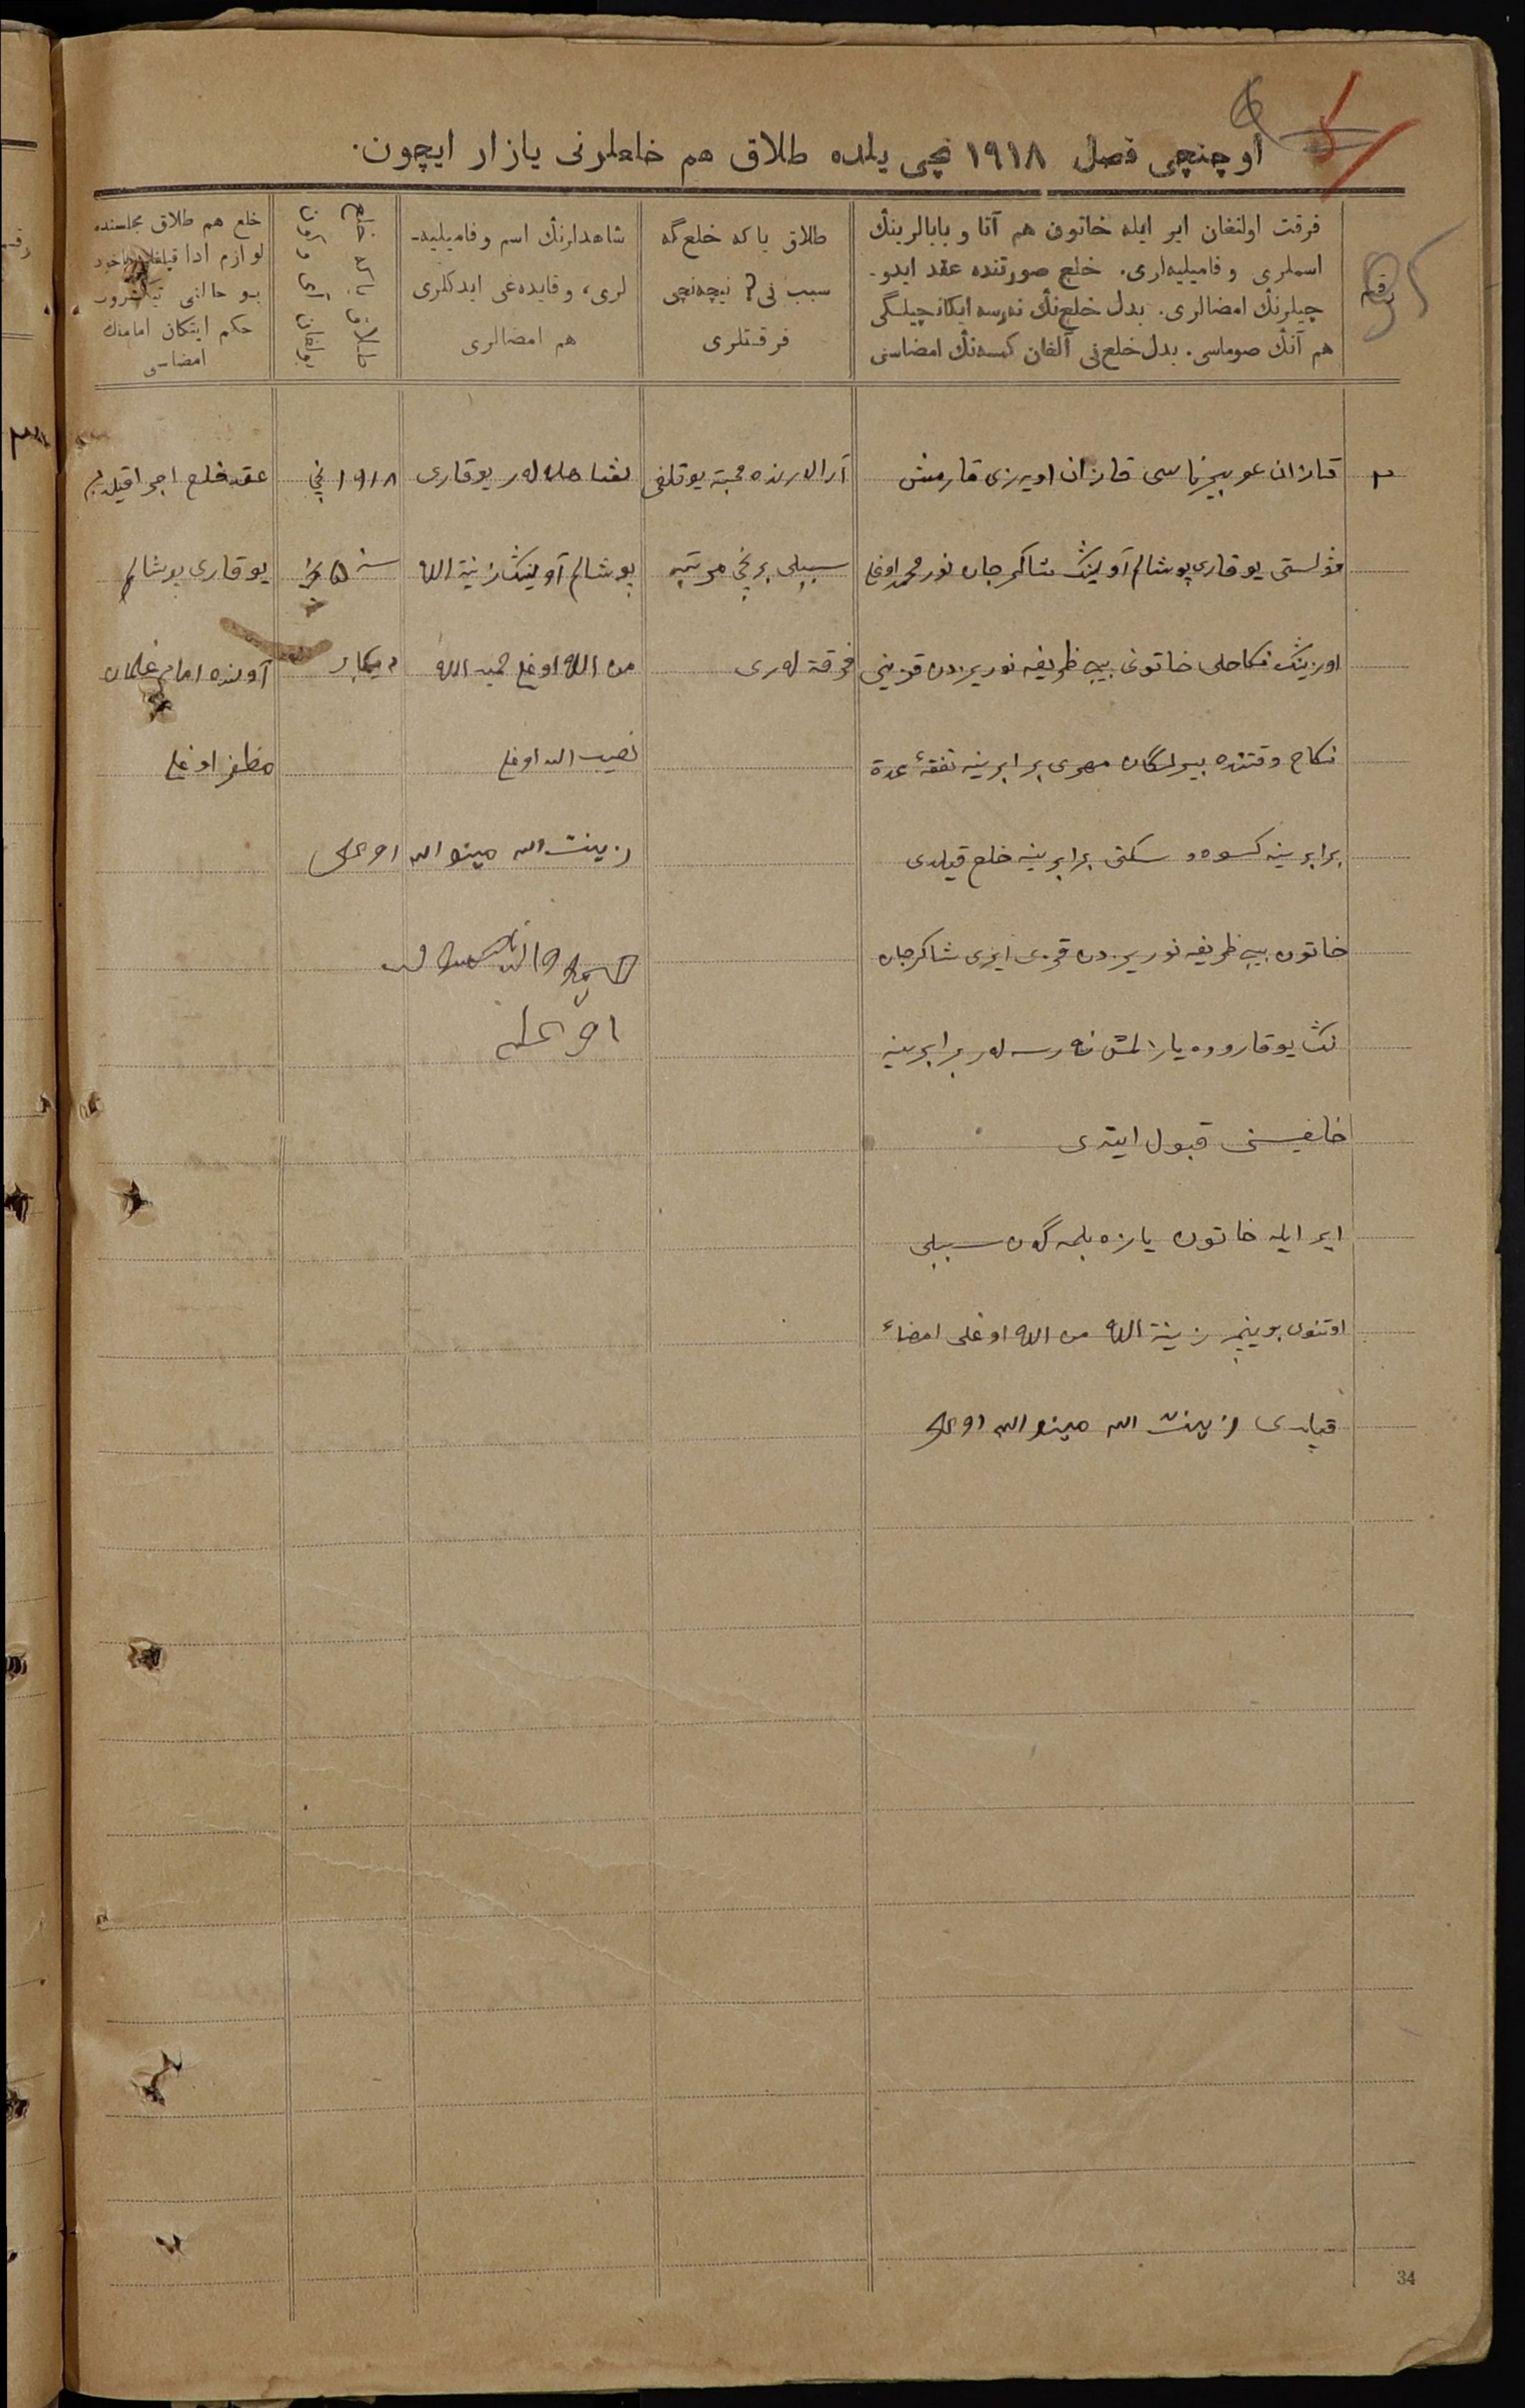 اوچنچی فصل ۱۹۱۸ نچی یلده طلاق هم خلعلرنی یازار ایچون.
رقم
فرقت اولنغان ایر ایله خاتون هم آتا و بابالرینڭ
اسملری و فامیلیه‌لری. خلع صورتنده عقد ایدو-
چیلرنڭ امضالری. بدل خلع‌نڭ نه‌رسه ایکانچیلگی
هم آنڭ صوماسی. بدل خلع‌نی آلغان کمسه‌نڭ امضاسی
طلاق یا که خلع گه
سبب نی؟ نیچه‌نچی
فرقتلری
شاهدلرنڭ اسم و فامیلیه-
لری، وقایده‌غی ایدکلری
هم امضالری
طلاق یا که خلع
بولغان آی و کون
خلع هم طلاق مجلسنده
لوازم ادا
بو حالنی
حکم ایتکان امامنڭ
امضاسی
۳
قازان غوبیرناسی قازان اویازی قارمش
ڤولستی یوقاری پوشالم آولینڭ شاکرجان نورمحمد اوغلی
اوزینڭ نکاحلی خاتونی بیبی ظریفه نور
نکاح وقتنده بیرلگان مهری برابرینه نفقهٔ عدة
برابرینه کسوه و سکنی برابرینه خلع قیلدی
خاتون بیبی ظریفه نور ایری شاکرجان
نڭ یوقاروده یازلمش نه‌رسه‌لر برابرینه
خلعسنی قبول ایتدی
ایر ایله خاتون یازه بلمه‌گان سببلی
اوتنون بوینچه زینة الله من الله اوغلی امضاء
قیلدی زینت الله مینو الله اوغلی
آرالارنده محبت یوقلغی
سببلی برنچی مرتبه
فرقة لری
یوقاری
پوشالم آولینڭ زینة الله
من الله اوغلی حمید الله
نصیب الله اوغلی
زینت الله مینو الله اوغلی
اوغلی
۱۹۱۸ نچی
سنه ۵ نچی
دیکابر
عقد خلع اجرا قیلدم
یوقاری پوشالم
آولنده امام
مظفر اوغلی
34